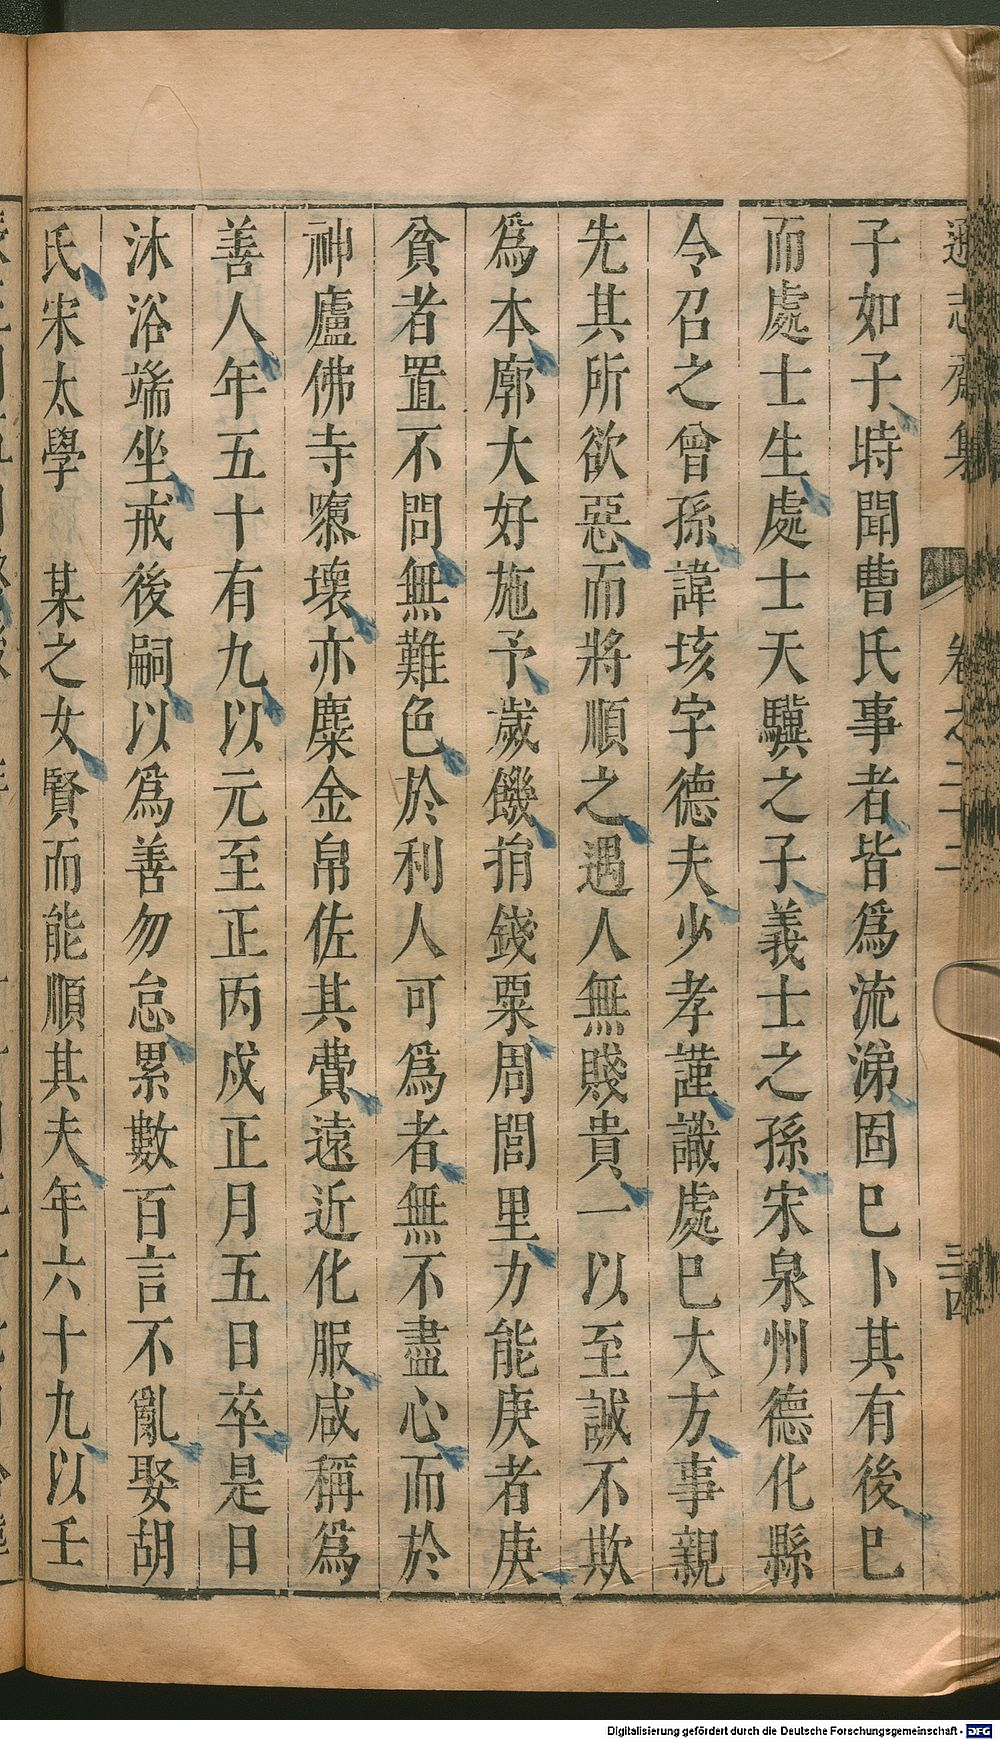 遜志齋集 卷之二十二 三四
子如子時聞曹氏事者皆爲流涕固已卜其有後已
而處士生處士天驥之子義士之孫宋泉州德化縣
令召之曾孫諱垓字德夫少孝謹識處已大方事親
先其所欲惡而將順之遇人無賤貴一以至誠不欺
爲本廓大好施予歲饑捐錢粟周閭里力能庚者庚
貧者置不問無難色於利人可爲者無不盡心而於
神廬佛寺隳壞亦麋金帛佐其費遠近化服咸稱爲
善人年五十有九以元至正丙戌正月五日卒是日
沐浴端坐戒後嗣以爲善勿怠累數百言不亂娶胡
氏宋太學 某之女賢而能順其夫年六十九以壬
Digitalisierung gefördert durch die Deutsche Forschungsgemeinschaft - DFG